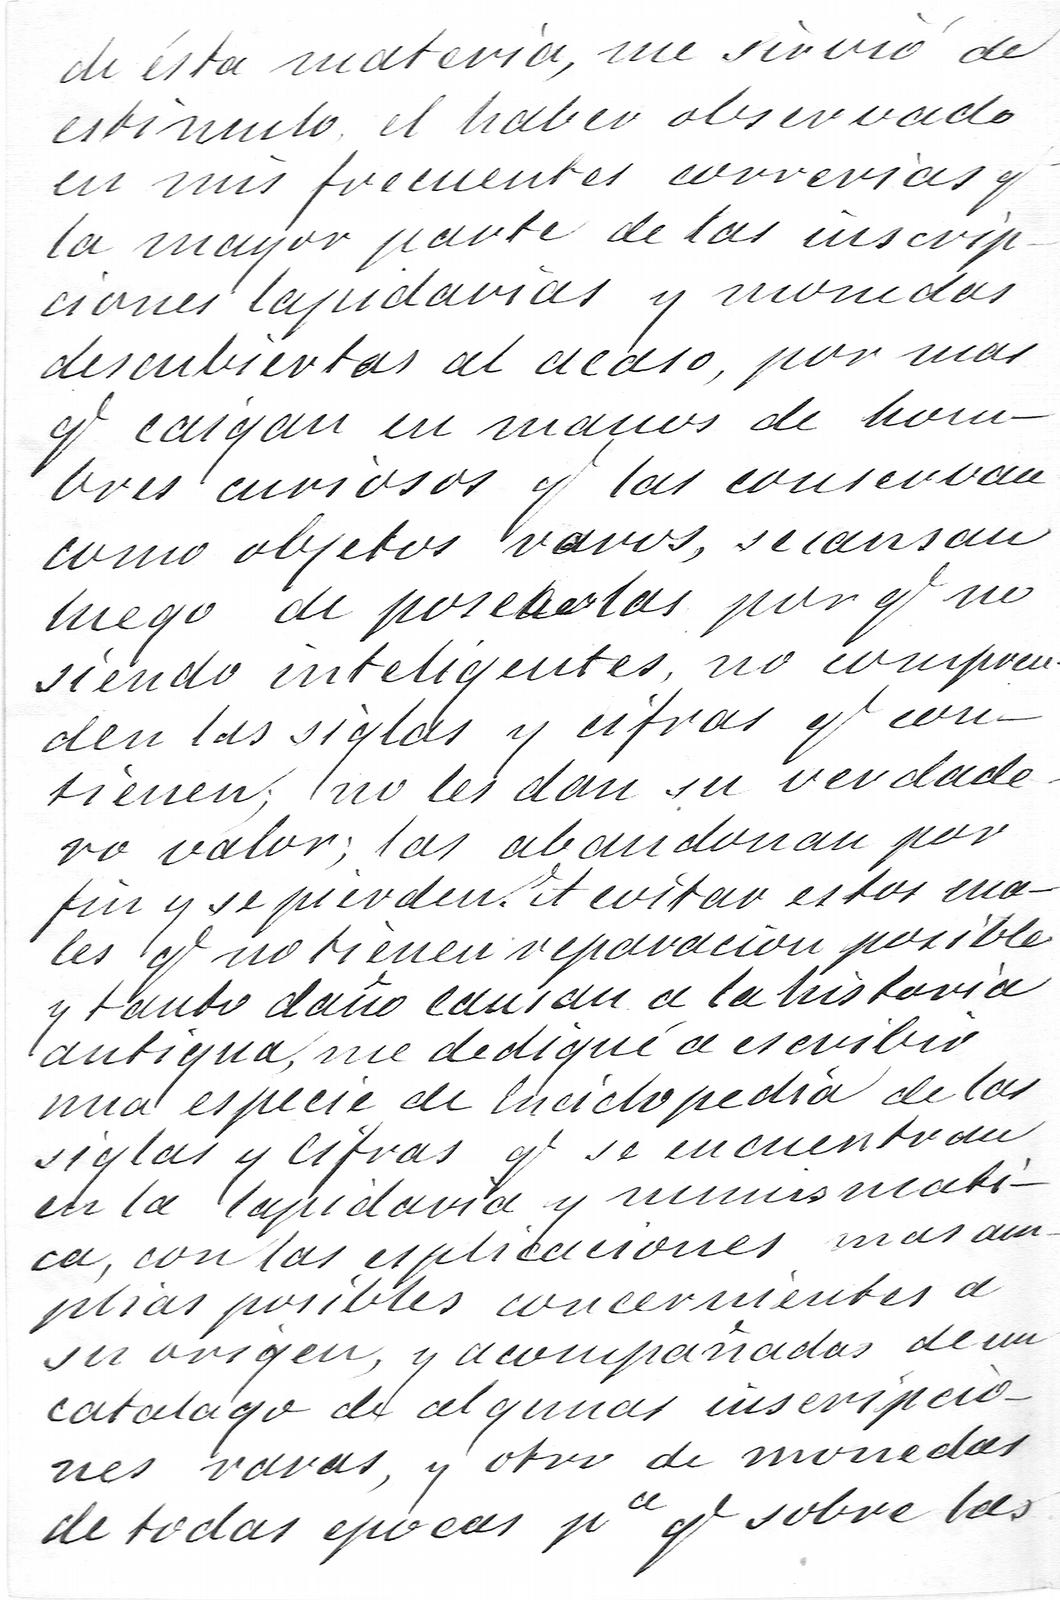 de ésta materia, me sirvió de
estimulo, el haber observado
en mis frecuentes correrias q̃
la mayor parte de las inscrip-
ciones lapidarias y monedas
descubiertas al acaso, por mas
q̃ caigan en manos de hom-
bres curiosos q̃ las conservan
como objetos raros, se cansan
luego de poseerlas por q̃ no
siendo inteligentes, no compren-
den las siglas y cifras q̃ con-
tienen; no les dan su verdade-
ro valor; las abandonan por
fin y se pierden. A evitar estos ma-
les q̃ no tienen reparacion posible
y tanto daño causan a la historia
antigua, me dediqué a escribir
una especie de Enciclopedia de las
siglas y Cifras q̃ se encuentran
en la lapidaria y numismati-
ca, con las esplicaciones mas am-
plias posibles concernientes a
su origen, y acompañadas de un
catalago de algunas inscripcio-
nes raras, y otro de monedas
de todas epocas pª q̃ sobre las